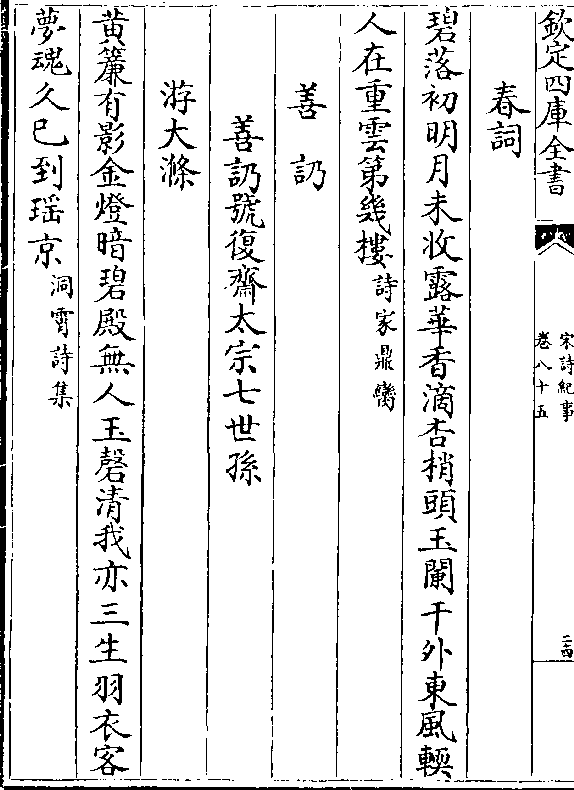 欽定四庫全書
宋詩紀事
卷八十五
二四
春詞
碧落初明月未收露華香滴杏梢頭玉闌干外東風輭
人在重雲第幾樓詩家鼎臠
善訒
善訒號復齋太宗七世孫
游大滌
黄簾有影金燈暗碧殿無人玉磬清我亦三生羽衣客
夢魂久已到瑶京洞霄詩集